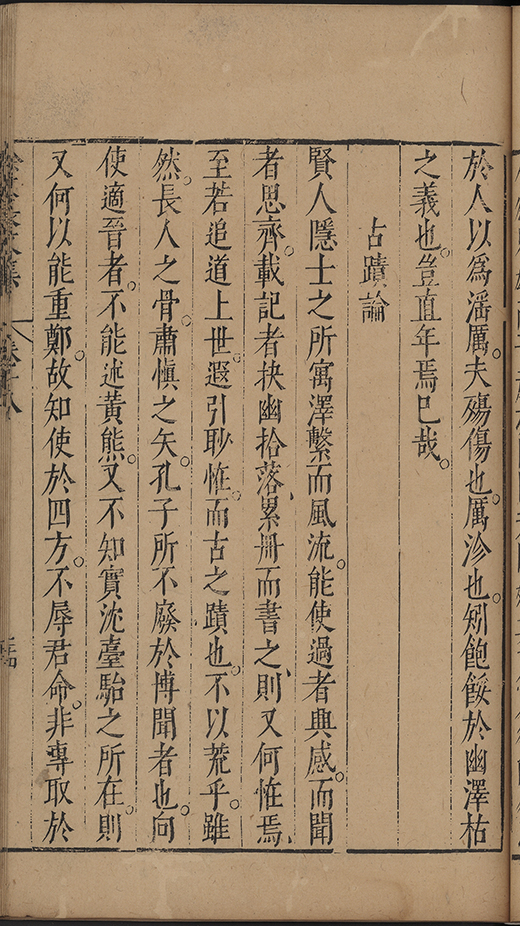 於人以爲濡厲夫殤傷也厲沴也矧飽餒於幽澤枯
之義也。豈直年焉已哉。
古蹟論
賢人隱士之所寓澤繫而風流。能使過者典感。而聞
者思齊。載記者抉幽拾落、累冊而書之、則又何惟焉、
至若追道上世。遐引眇惟。而古之蹟也。不以荒乎。雖
然。長人之骨。肅慎之矢。孔子所不廢於博聞者也。向
使適晉者。不能述黃熊。又不知實沈臺駘之所在。則
又何以能重鄭。故知使於四方。不辱君命。非專取於